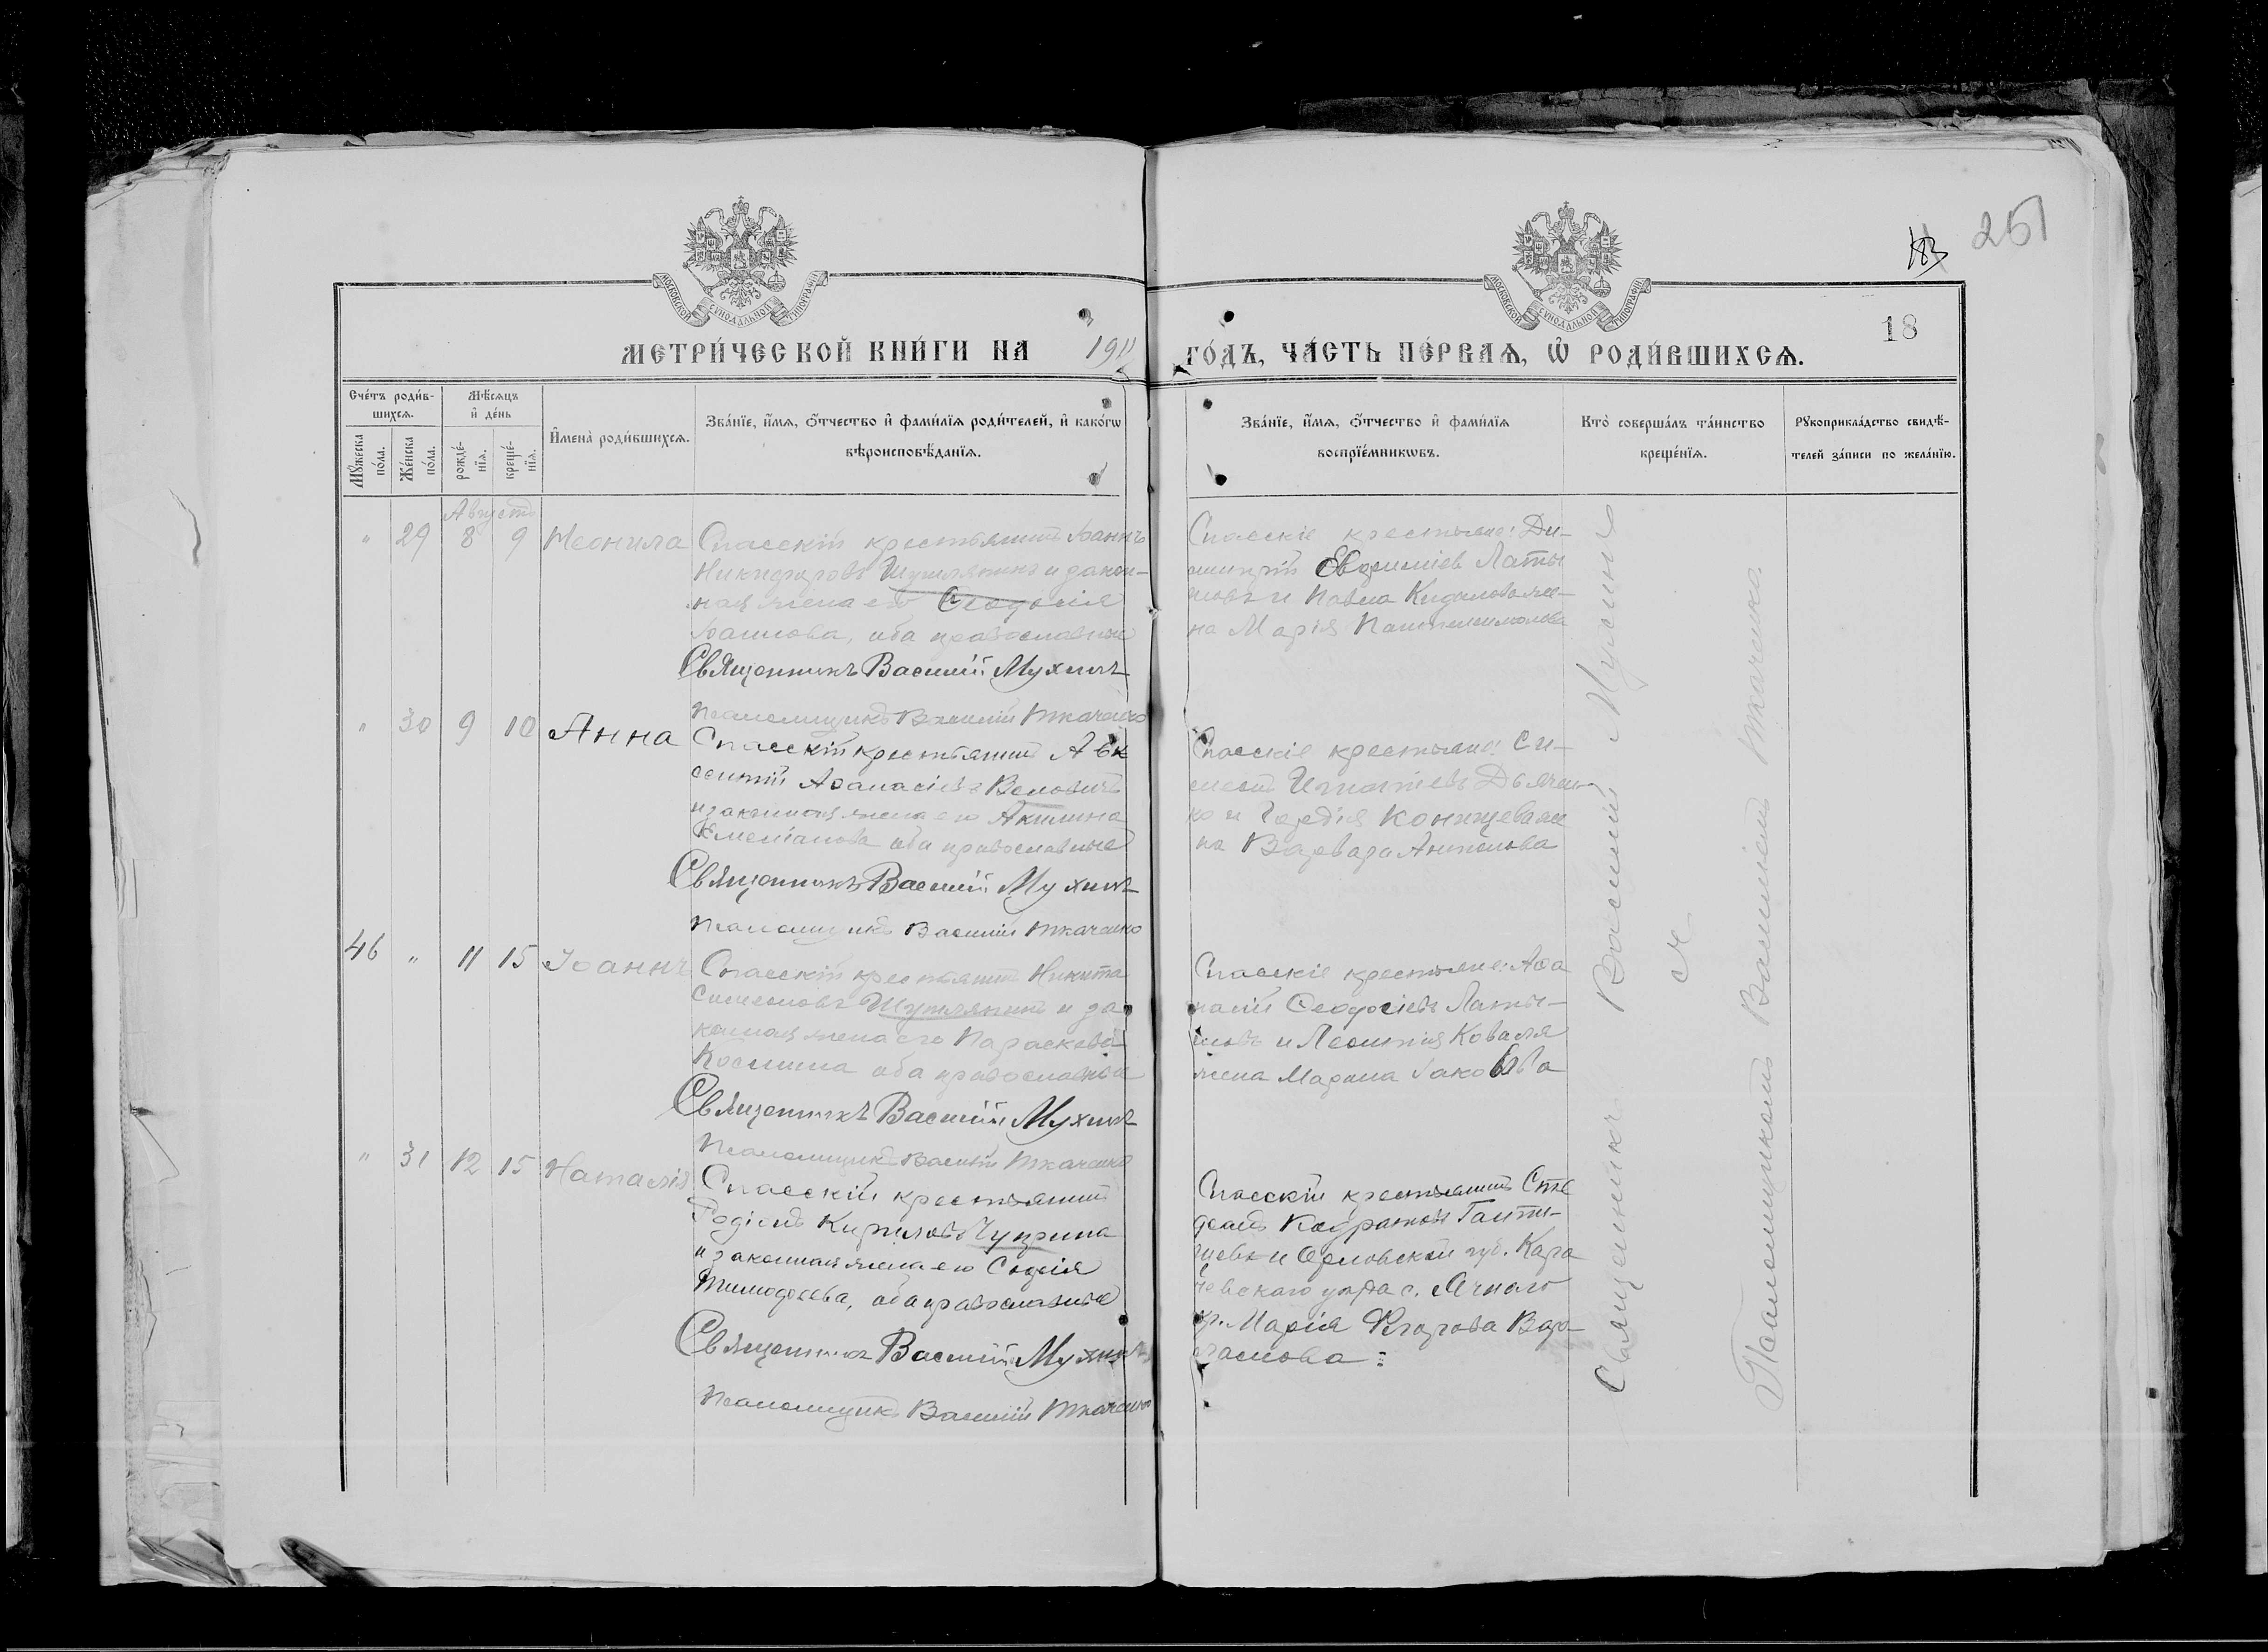 183
251
МОСКОВСКОЙ СѴНОДАЛЬНОЙ ТИПОГРАФІИ
МОСКОВСКОЙ СѴНОДАЛЬНОЙ ТИПОГРАФІИ
18
МЕТРИ́ЧЕСКОЙ КНИ́ГИ НА 1911 ГО́ДЪ, ЧА́СТЬ ПЕ́РВАѦ, Ѡ҆ РОДИ́ВШИХСѦ.
Сче́тъ роди́в-
шихсѧ.
Мꙋ́жеска по́ла.
Же́нска по́ла.
Мѣ́сѧцъ
и҆ де́нь
рожде́-
нїѧ.
креще́-
нїѧ.
И҆мена̀ роди́вшихсѧ.
Зва́нїе, и҆́мѧ, ѻ҆́тчество и҆ фами́лїѧ роди́телей, и҆ како́гѡ
вѣроисповѣ́данїѧ.
Зва́нїе, и҆́мѧ, ѻ҆́тчество и҆ фами́лїѧ
воспрїе́мникѡвъ.
Кто̀ соверша́лъ та́инство
креще́нїѧ.
Рꙋкоприкла́дство свидѣ́-
телей за́писи по жела́нїю.
Августъ
" 29 8 9 Неонила
Спасскій крестьянинъ Іоаннъ
Никифоровъ Шушлякинъ и закон-
ная жена его Ѳеодосія
Іоаннова, оба православные
Священникъ Василій Мухинъ
Псаломщикъ Василій Ткаченко
Спасскіе крестьяне: Ди-
митрій Евфиміев Латы
шовъ и Павла Кидалова же-
на Марія Пантелеимонова
" 30 9 10 Анна
Спасскій крестьянинъ Авк
сентій Аѳанасіевъ
и законная жена его Акилина
Емеліанова оба православные
Священникъ Василій Мухинъ
Псаломщикъ Василій Ткаченко
Спасскіе крестьяне: Си-
меонъ Игнатіевъ Дьячен-
ко и Гордія Конищева же
на Варвара Антонова
46 " 11 15 Іоаннъ
Спасскій крестьянинъ Никита
Симеоновъ Шушлякинъ и за
конная жена его Параскева
Космина оба православные
Священникъ Василій Мухинъ
Псаломщикъ Василій Ткаченко
Спасскіе крестьяне: Аѳа
насій Ѳеодосіевъ Латы-
шовъ и Леонтія Коваля
жена Марина Іаковлева
" 31 12 15 Наталія
Спасскій крестьянинъ
Родіонъ Кириловъ Чуприна
и законная жена его Софія
Тимофеева, оба православные
Священникъ Василій Мухинъ
Псаломщикъ Василій Ткаченко
Спасскій крестьянинъ Сте
фанъ Кодратовъ
и Орловской губ. Кара
чевскаго уѣзда с.
кр. Марія Егорова Вар-
Священникъ Василій Мухинъ
съ
Псаломщикомъ Василіемъ Ткаченко.